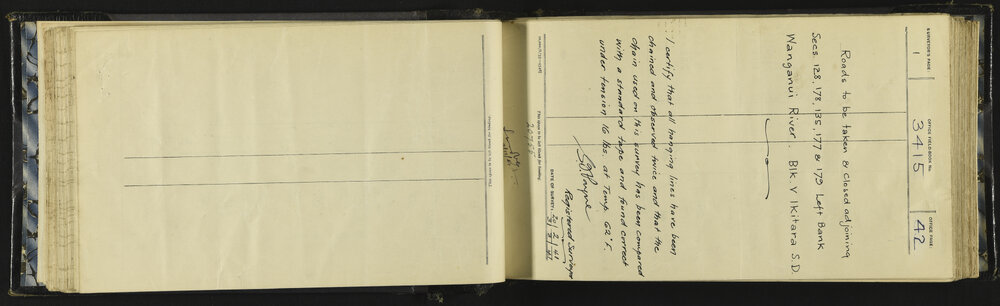 SURVEYOR'S PAGE
1
OFFICE FIELD-BOOK No.
3415
OFFICE PAGE
42
Roads to be taken & Closed adjoining
Secs. 128, 178, 135, 177 & 179 Left Bank
Wanganui River. Blk V Ikitara S.D.
I certify that all hanging lines have been
chained and observed twice and that the
chain used on this survey has been compared
with a standard tape and found correct
under tension 16 lbs. at Temp. 62°F.
Payne
Registered Surveyor
DATE OF SURVEY:
This space to be left blank for binding.